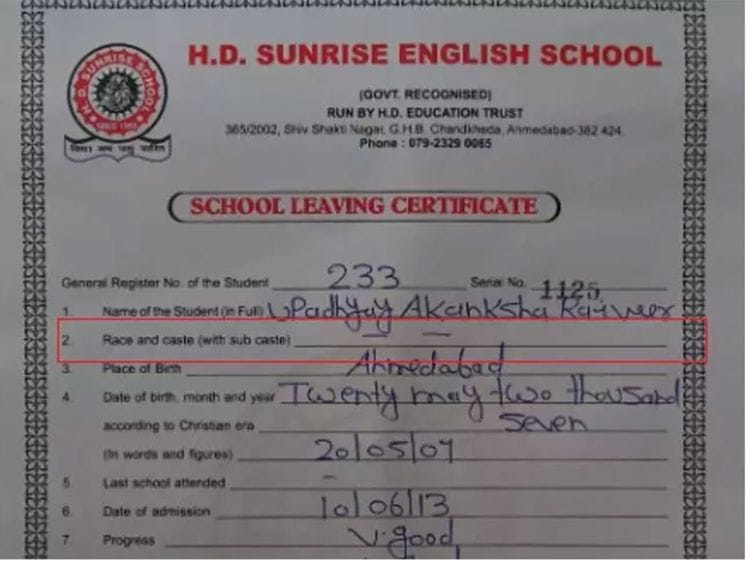 H.D. SUNRISE SCHOOL
H.D. SUNRISE ENGLISH SCHOOL
(GOVT. RECOGNISED)
RUN BY H.D. EDUCATION TRUST
365/2002, Shiv Shakti Nagar, G.H.B. Chandkheda, Ahmedabad-382 424.
Phone : 079-2329 0065
SCHOOL LEAVING CERTIFICATE
General Register No. of the Student 233 Serial No. 1125
1. Name of the Student (in Full) Upadhyay Akanksha
2. Race and caste (with sub caste) — —
3. Place of Birth Ahmedabad
4. Date of birth, month and year Twenty may two thousand
according to Christian era Seven
(In words and figures) 20/05/07
5. Last school attended –
6. Date of admission 10/06/13
7. Progress V.good